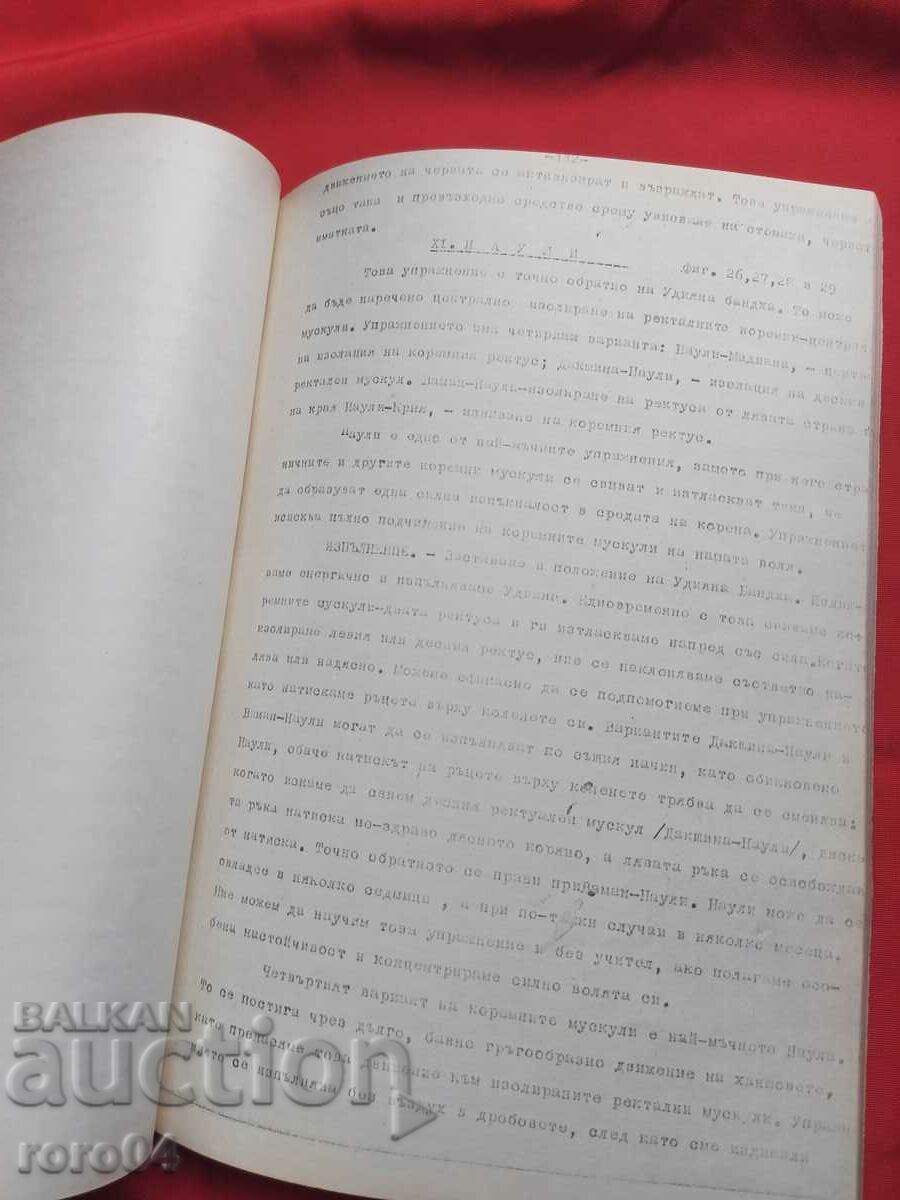 -112-
движението на червата се активизират и възраждат. Това упражнение е
също така и превъзходно средство срещу увисване на стомаха, червата
матката.
XI. Н А У Л И Фиг. 26,27,28 и 29
Това упражнение е точно обратно на Удияна бандха. То може
да бъде наречено централно изолиране на ректалните коремни-централ
мускули. Упражнението има четириma варианта: Наули-Мадиана, - центра
на изолация на коремния ректус; Дакшина-Наули, - изолация на десния
ректален мускул. Ваман-Наули-изолиране на ректуса от лявата страна
на края Наули-Крия, - изпиване на коремния ректус.
Наули е едно от най-мъчните упражнения, защото при него стра
ничните и другите коремни мускули се свиват и изтласкват така, че
да образуват една силна изпъкналост в средата на корема. Упражнението
изисква пълно подчинение на коремните мускули на нашата воля.
ИЗПЪЛНЕНИЕ. - Заставаме в положение на Удияна Бандха. Издиш-
ваме енергично и изпълняваме Удиана. Едновременно с това свиваме ко-
ремните мускули-двата ректуса и ги изтласкваме напред със сила. Когато
изолираме левия или десния ректус, ние се накланяме съответно на-
ляво или надясно. Можем ефикасно да се подпомогнеме при упражнението
като натискаме ръцете върху коленете си. Вариантите Дакшина-Наули и
Ваман-Наули могат да се изпълняват по същия начин, като обикновено
Наули, обаче натискът на ръцете върху коленете трябва да се сменява:
когато искаме да свием десния ректуален мускул /Дакшина-Наули/, дясна
та ръка натиска по-здраво дясното коляно, а лявата ръка се освобождава
от натиска. Точно обратното се прави при Ваман-Наули. Наули може да се
овладее в няколко седмици , а при по-тежки случаи в няколко месеца.
Ние можем да научим това упражнение и без учител, ако полагаме осо-
бена настойчивост и концентрираме силно волята си.
Четвъртият вариант на коремните мускули е най-мъчното Наули.
То се постига чрез дълго, бавно кръгообразно движение на ханшовете,
като пренасяме това движение към изолираните ректални мускули. Упраж
нието се изпълнява без въздух в дробовете, след като сме издишали
BALKAN
auction
roro04